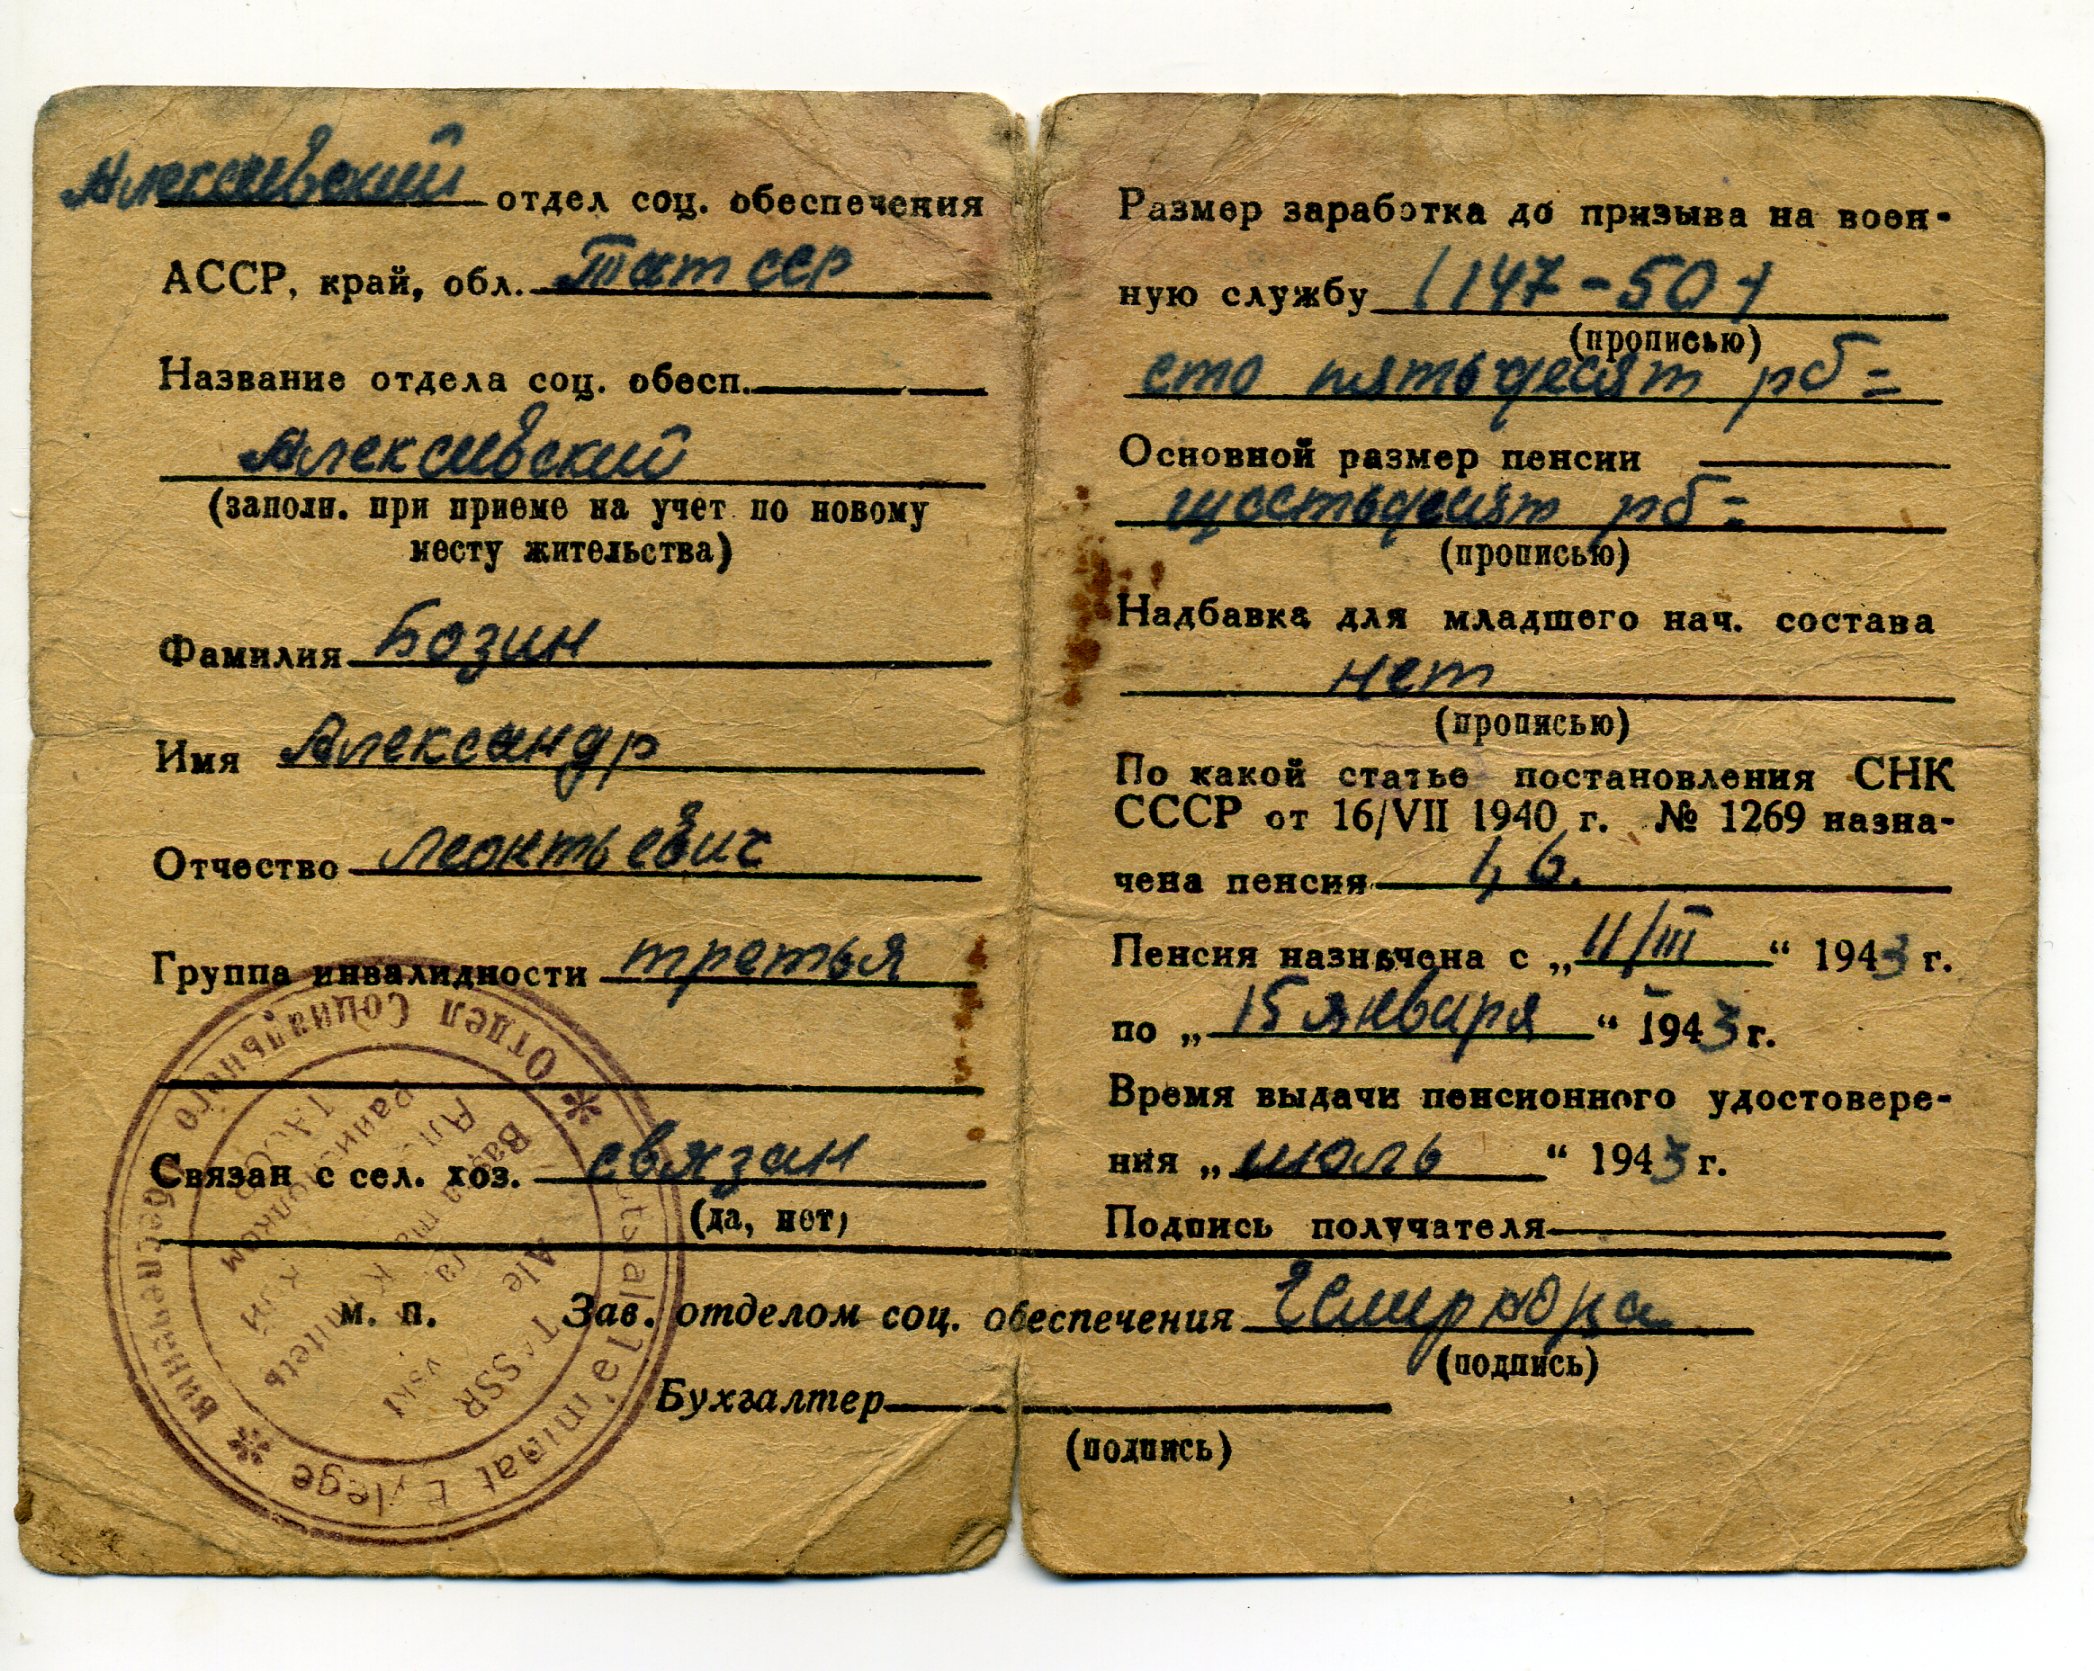 Алексеевский отдел соц. обеспечения
АССР, край, обл. Тат ССР
Название отдела соц. обесп.
Алексеевский
(заполн. при приеме на учет по новому
месту жительства)
Фамилия Бозин
Имя Александр
Отчество Леонтьевич
Группа инвалидности третья
Связан с сел. хоз. связан
(да, нет)
м. п. Зав. отделом соц. обеспечения
(подпись)
Бухгалтер
(подпись)
Размер заработка до призыва на воен-
ную службу (147-50)
(прописью)
сто пятьдесят рб=
Основной размер пенсии
шостьдесят рб=
(прописью)
Надбавка для младшего нач. состава
нет
(прописью)
По какой статье постановления СНК
СССР от 16/VII 1940 г. № 1269 назна-
чена пенсия 1, б.
Пенсия назначена с „11/III“ 1943 г.
по „15 января“ 1943 г.
Время выдачи пенсионного удостовере-
ния „июль“ 1943 г.
Подпись получателя
Отдел Социального обеспечения
Ta'minat Bylege
TASSR